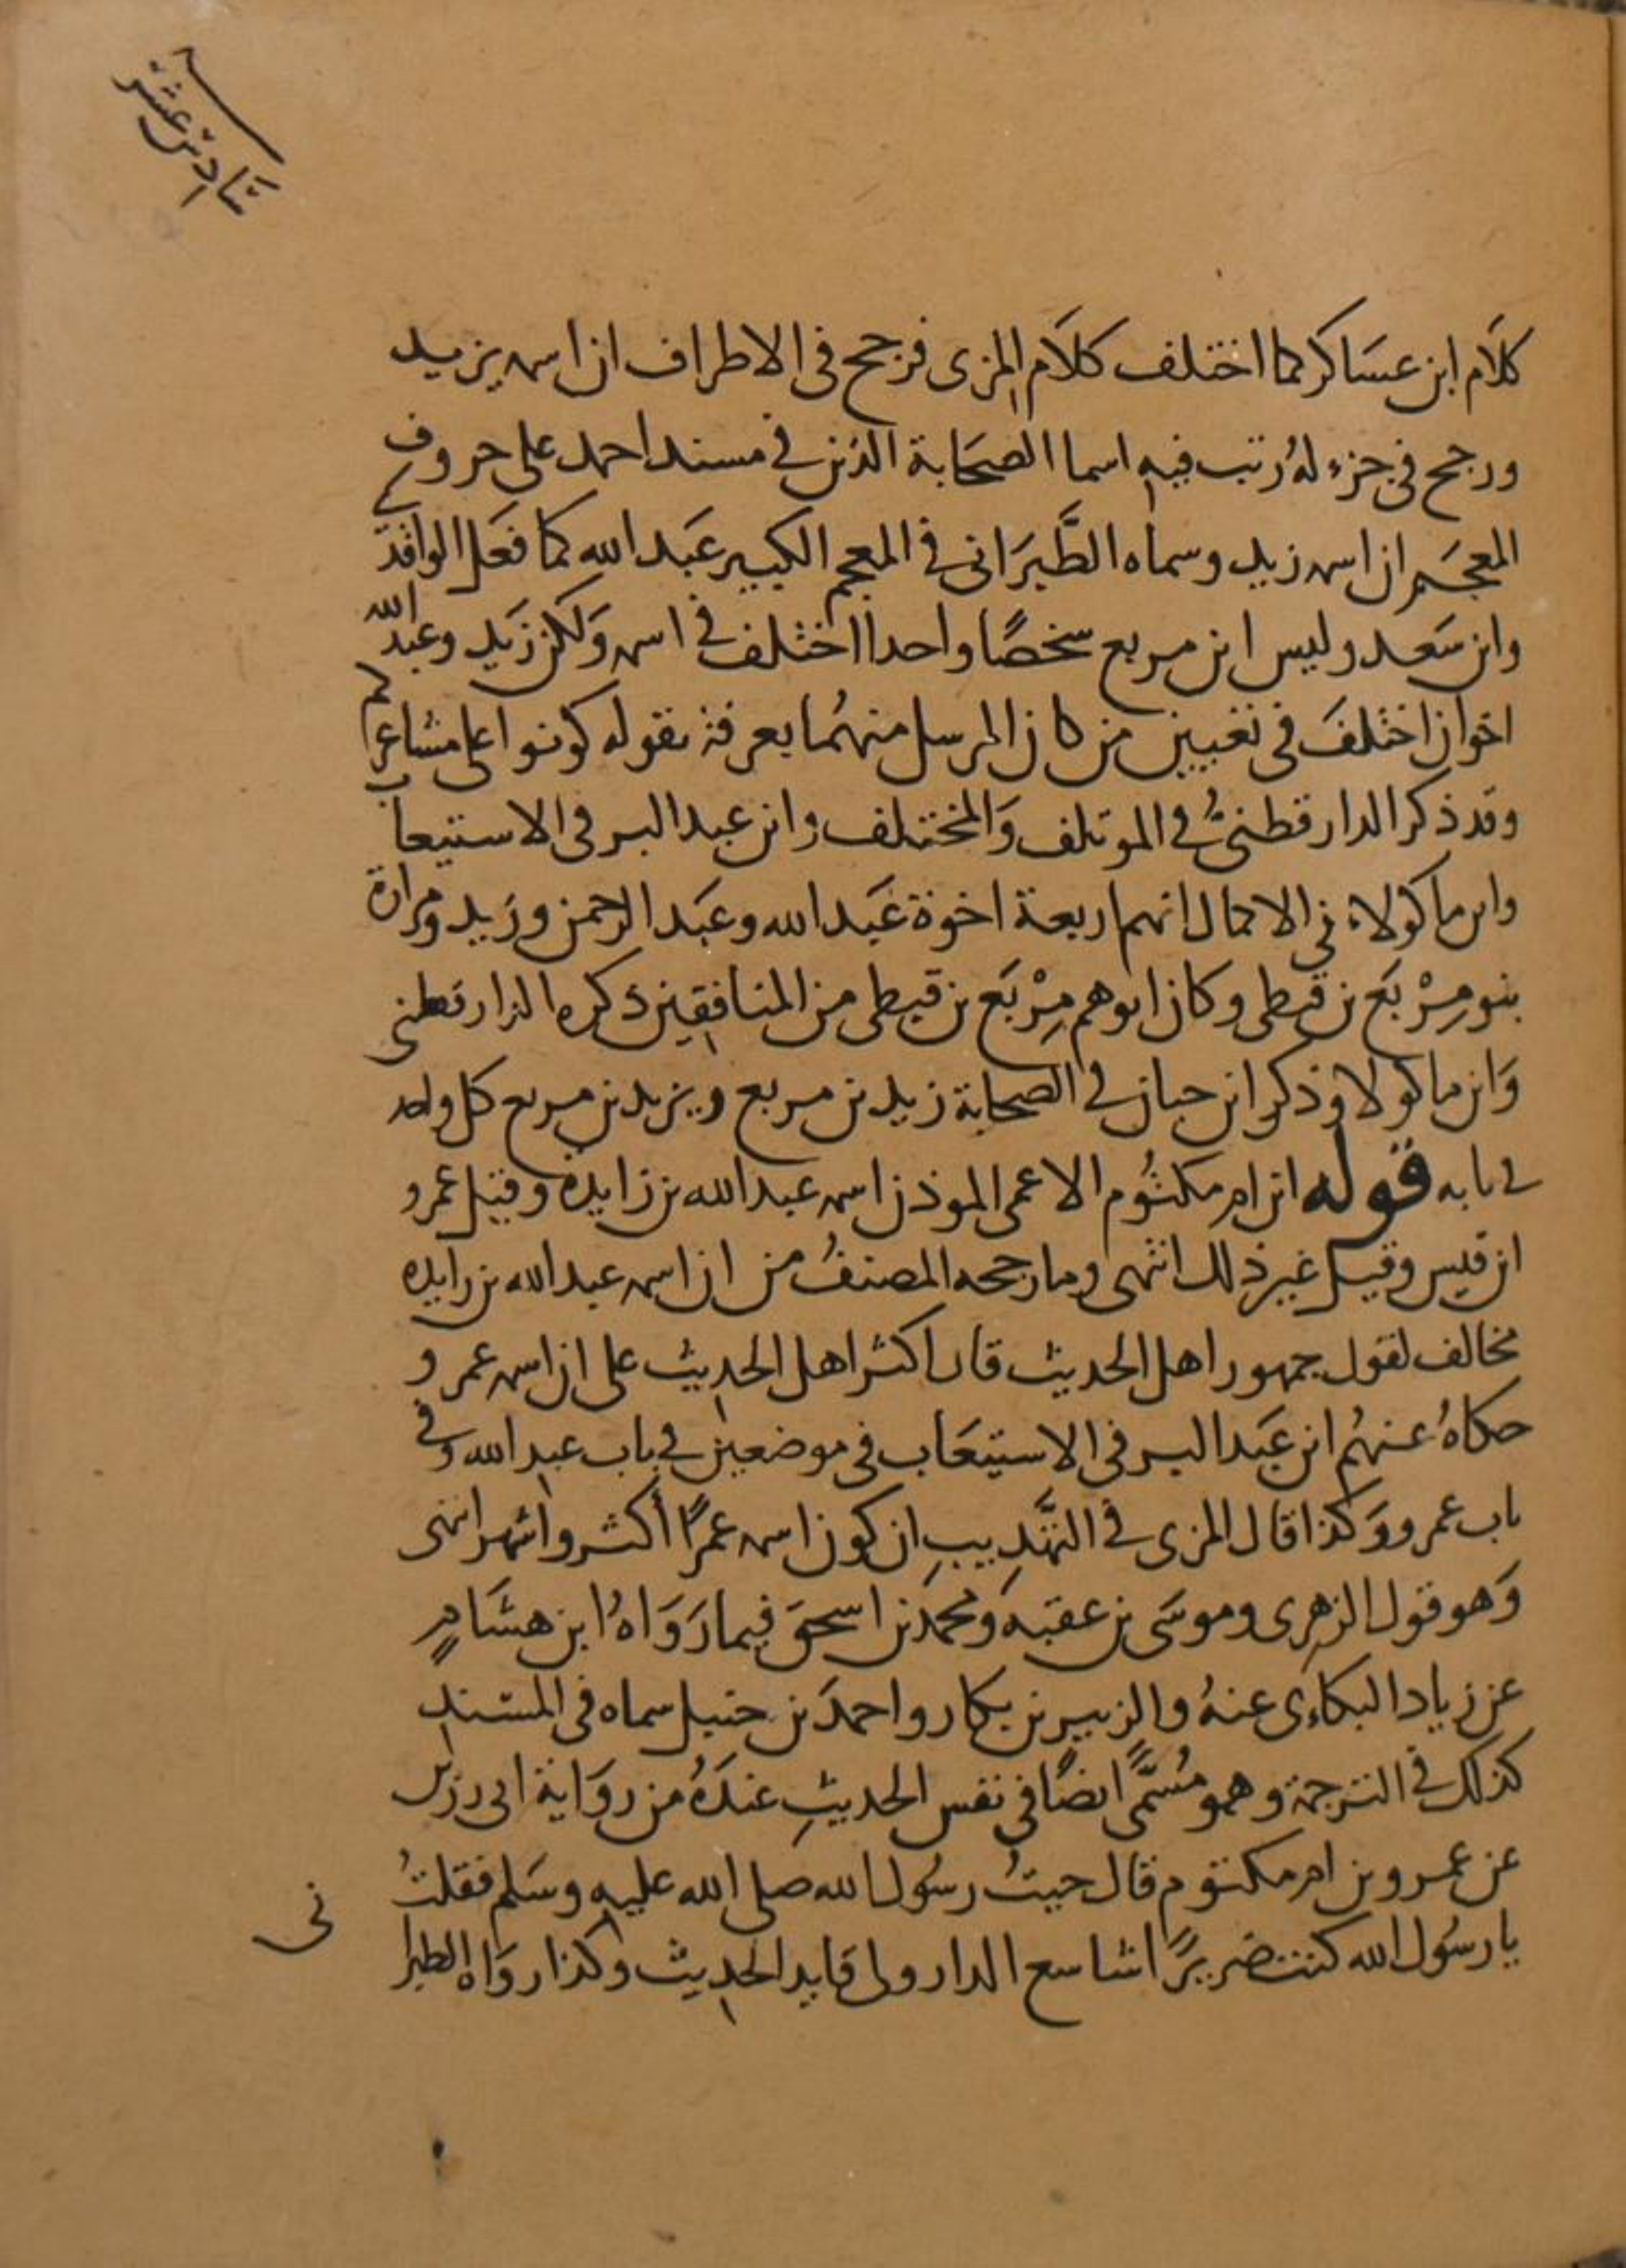 سادس عشر
كلَام ابن عسَاكر كما اختلف كلَام المزى فرجح فى الاطراف ان اسمه يزيد
ورجح فى جزء لهُ رتب فيه اسما الصحَابة الذين فى مسند احمد على حروف
المعجَم ان اسمه زيد وسماه الطَّبرَانى فى المعجم الكبير عبَد الله كما فعَل الواقدى
وابن سَعد وليس ابن مربع سخصًا واحدا اختلف فى اسمه وَلكن زَيد وعبد الله
اخوان اختلفَ فى تعيين من كان المرسل منهُما بعرفة بقوله كونوا على مشاعركم
وقد ذكر الدارقطنىُّ فى الموتلف وَالمختلف وابن عبد البر فى الاستيعاب
وابن ماكولاء فى الاكمال انهم اربعة اخوة عبَد الله وعبَد الرحمن وزَيد ومرارة
بنو مِرْبَع بن قيطى وكان ابوهم مِرْبَع بن قيطى من المنافقين ذكره الدارقطنى
وَابن ماكولا وذكر ابن حبان فى الصحابة زيد بن مربع ويزيد بن مربع كل واحد
فى بابه قوله ابن ام مكتُوم الاعمى الموذن اسمه عبد الله بن زايدة وقيل عمرو
ابن قيس وقيل غير ذلك انتهى وما رجحه المصنفُ من ان اسمه عبد الله بن زايده
مخالف لقول جمهور اهل الحديث فان اكثر اهل الحديث على ان اسمه عمرو
حكاهُ عنهُم ابن عبَد البر فى الاستيعَاب فى موضعين فى باب عبد الله وفى
باب عمرو وَكذا قال المزى فى التهَّديبِ ان كون اسمه عمرًا أكثر واشهر انتهى
وَهو قول الزهرى وموسَى بن عقبه وَمحمدَ بن اسحقَ فيما رَوَاهُ ابن هشَامٍ
عن زياد البكاءِى عنهُ والزبير بن بكار واحمدَ بن حنبل سماه فى المسندِ
كذلك فى الترجمة وهو مُسَمًّى ايضًا فى نفس الحديثِ عندَهُ من روَاية ابى رزين
عن عمرو بن ام مكتوم قال جيتُ رسُول الله صلى الله عليه وسَلم فقلتُ
يا رسُول الله كنت ضريرًا شاسع الدار ولى قايد الحديث وكذا روَاه الطبرا
نى